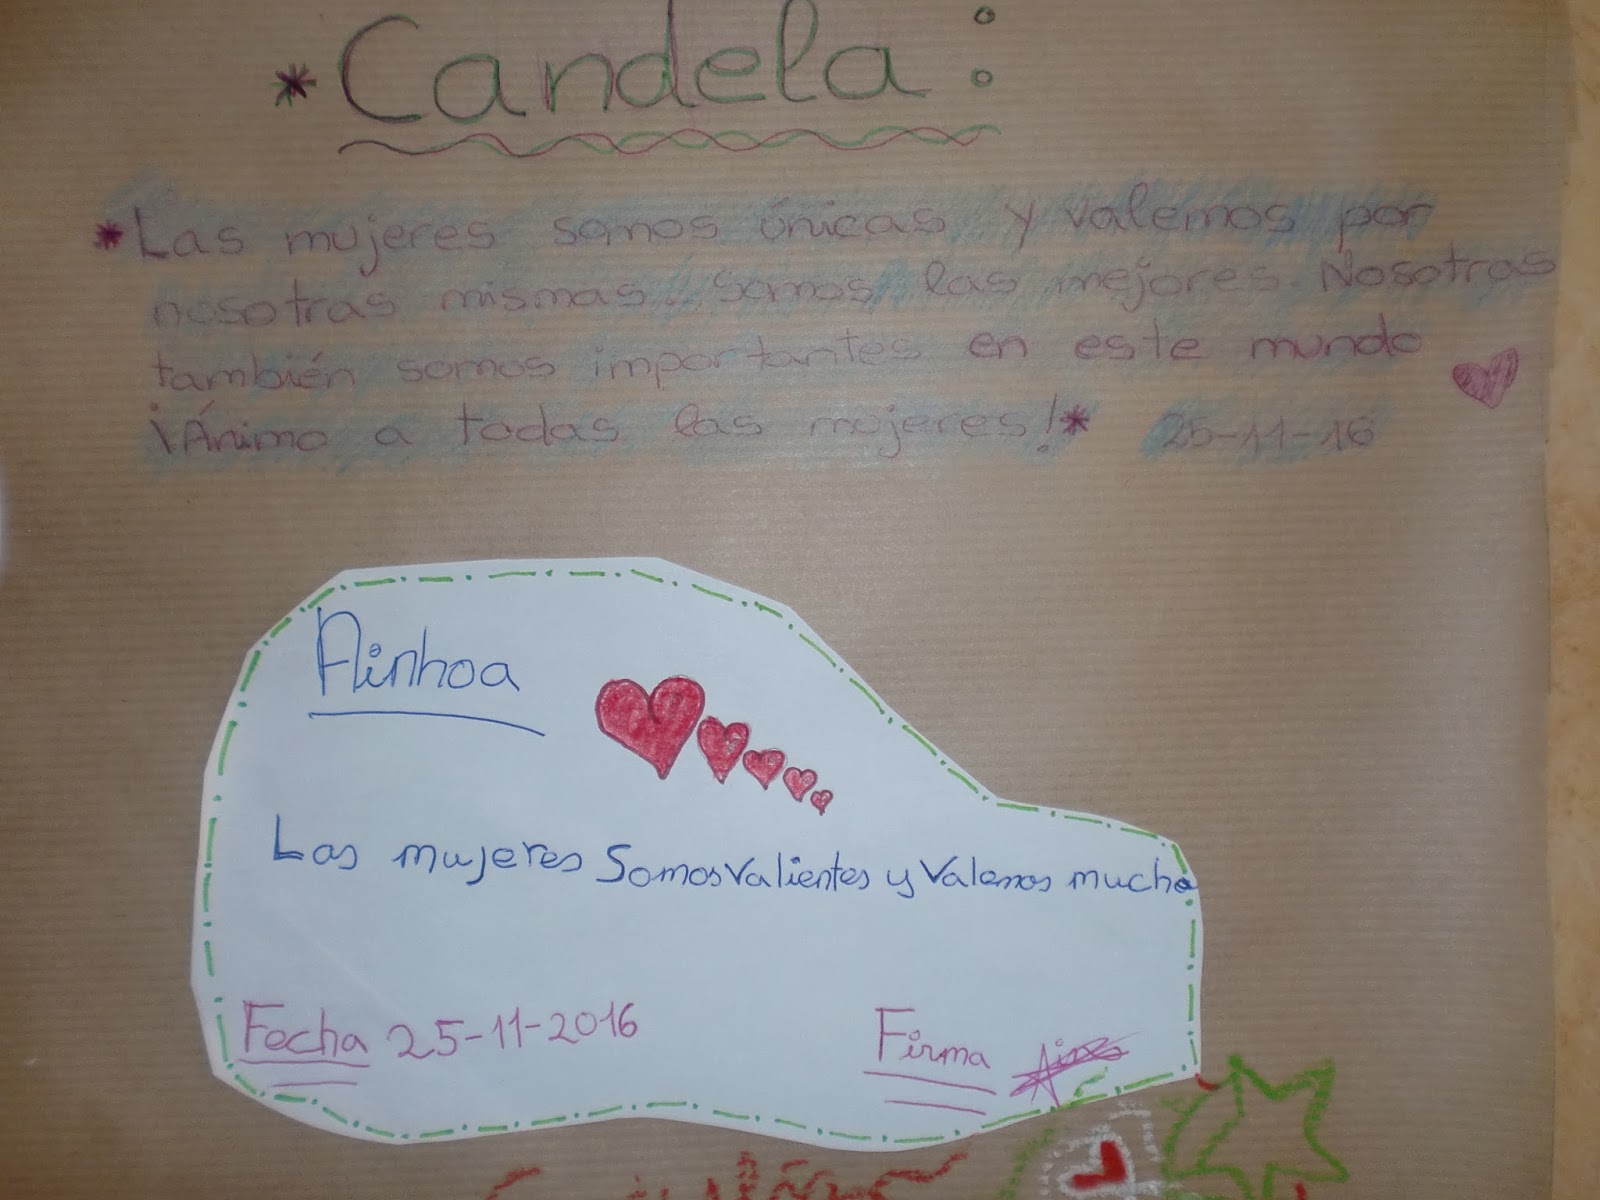 * Candela:
* Las mujeres somos únicas y valemos por
nosotras mismas. Somos las mejores. Nosotras
también somos importantes en este mundo
¡Ánimo a todas las mujeres!* 25-11-16
Ainhoa
Las mujeres Somos Valientes y Valemos mucho
Fecha 25-11-2016
Firma